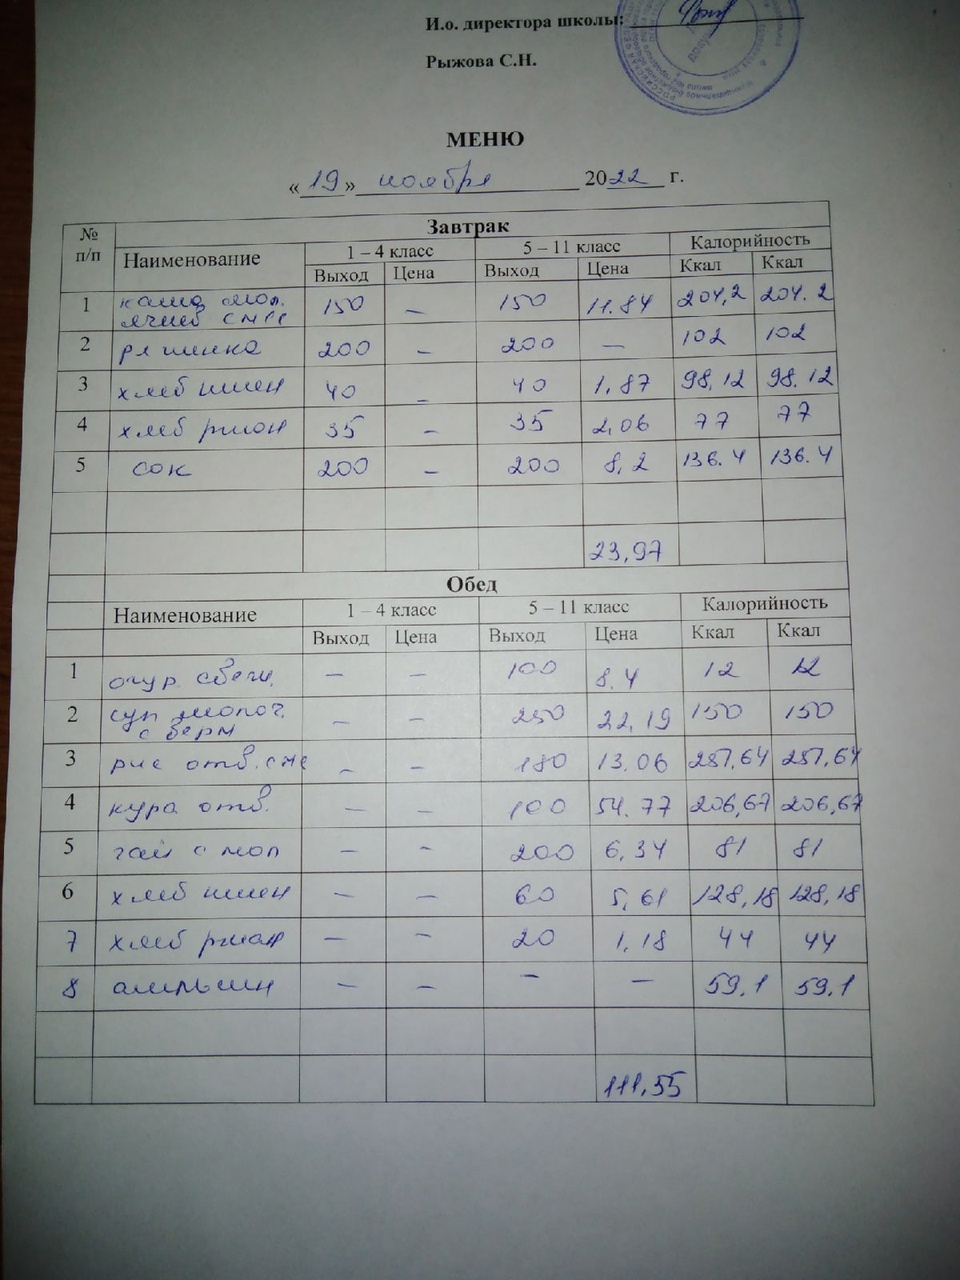 И.о. директора школы:
Рыжова С.Н.
МЕНЮ
« 19 » ноября 2022 г.
№ п/п Завтрак
Наименование 1 – 4 класс 5 – 11 класс Калорийность
Выход Цена Выход Цена Ккал Ккал
1 каша мол. 150 – 150 11.84 204,2 204.2
ячнев с м
2 200 – 200 – 102 102
3 хлеб пшен 40 – 40 1,87 98,12 98.12
4 хлеб ржан 35 – 35 2,06 77 77
5 сок 200 – 200 8,2 136.4 136.4
23,97
Обед
Наименование 1 – 4 класс 5 – 11 класс Калорийность
Выход Цена Выход Цена Ккал Ккал
1 огур. свеж. – – 100 8.4 12 12
2 суп молоч. – – 250 22,19 150 150
с верм
3 рис отв. – – 180 13.06 287,64 287,64
4 кура отв. – – 100 54.77 206,67 206,67
5 чай с мол – – 200 6,34 81 81
6 хлеб пшен – – 60 5,61 128,18 128,18
7 хлеб ржан – – 20 1,18 44 44
8 апельсин – – – – 59,1 59,1
111,55